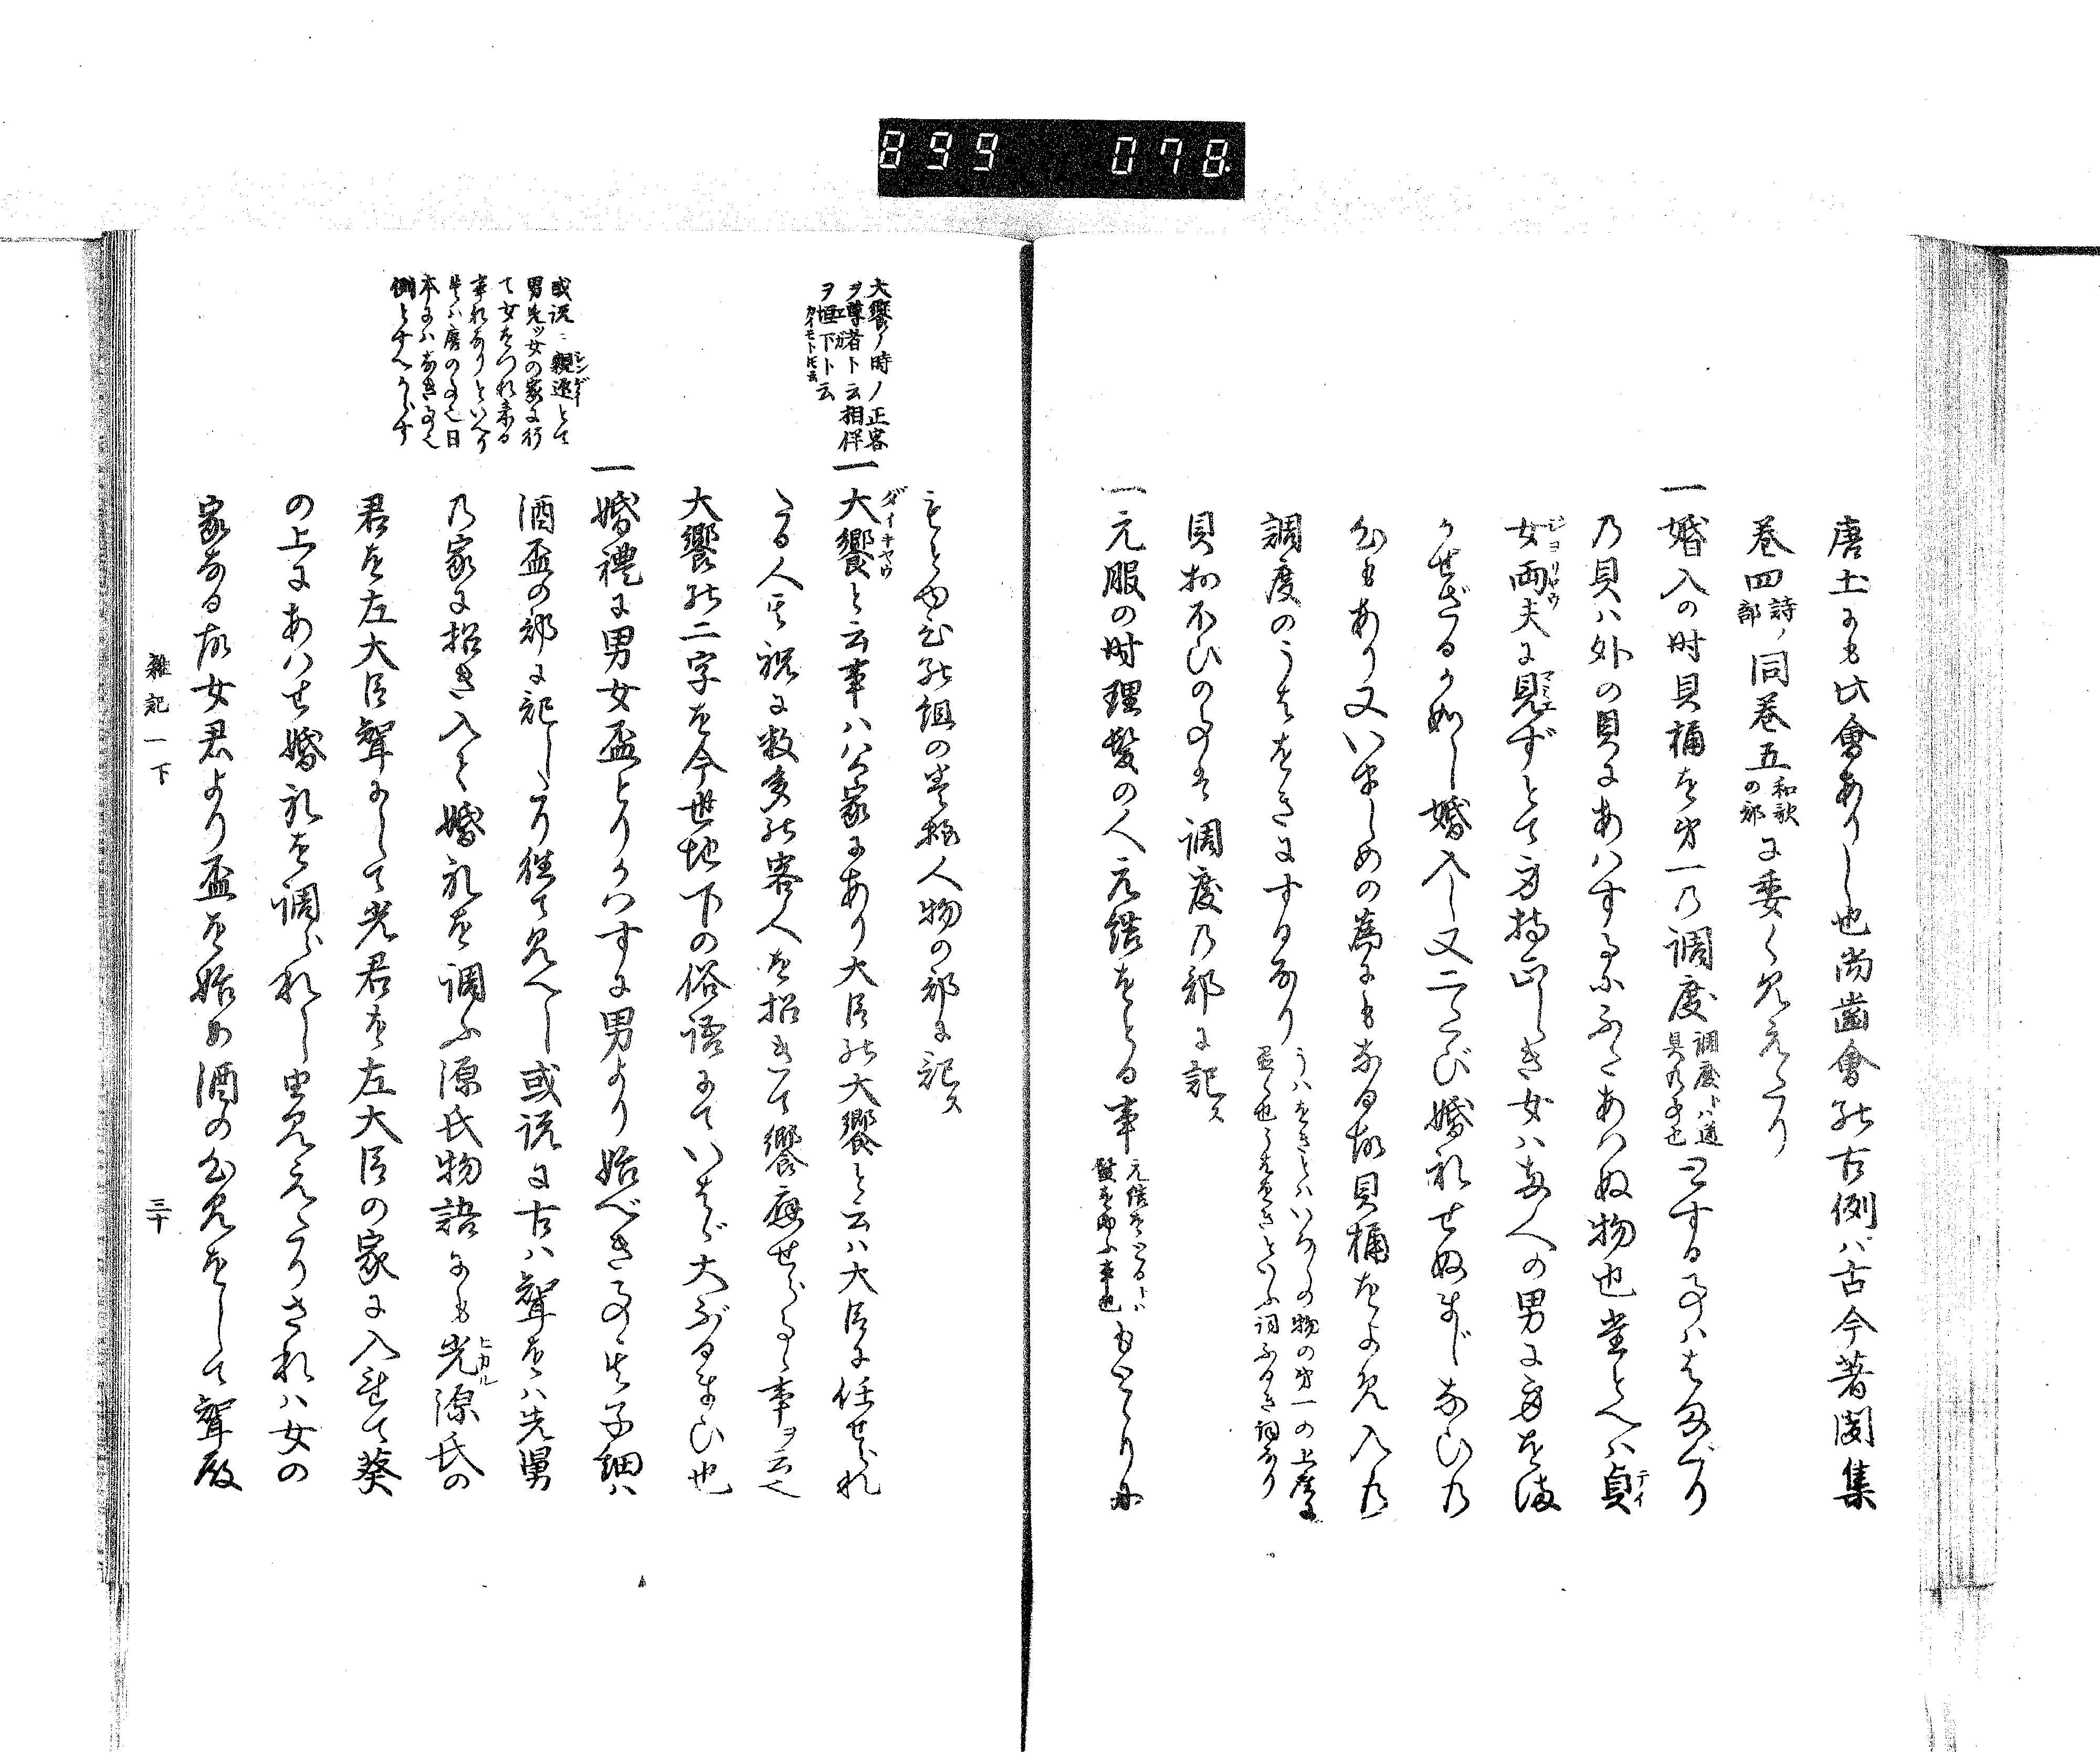 899 078
唐土にも此會ありし也尚齒會の古例ハ古今著聞集
巻四詩ノ部同巻五和歌の部に委く見えたり
一婚入の時貝桶を第一乃調度調度トハ道具の事也とする事ハはまぐり
乃貝ハ外の貝にあハするにふたあハぬ物也堂とへハ貞テイ
女ジヨ両リヤウ夫に見マミエずとて身持正しき女ハあ人の男に身をま
かせざるか如し婚入し又二たび婚礼せぬまじなひ乃
心もあり又いましめの為にもなる故貝桶をよめ入乃
調度のうハをきにするなり うハをきとハいろ〱の物の第一の上座に置く也うハをきと云ふ詞ふるき詞なり
貝おほひの事は調度乃部に記ス
一元服の時理髪の人元結をとる事 元結をとるトハ髪を結ふ事也 もとゝりに
もとゆひの組の巻物人物の部に記ス
一大饗ダイキヤウと云事ハ公家にあり大臣の大饗と云ハ大臣に任せられ
たる人其祝に数多の客人を招きて饗應せらるゝ事ヲ云也
大饗の二字を今世地下の俗語にていはゞ大ぶるまひ也
一婚禮に男女盃とりかハすに男より始べき事其子細ハ
酒盃の部に記したり徃て見べし或説に古ハ聟をハ先舅
乃家に招き入て婚礼を調ふ源氏物語にも光ヒカル源氏の
君を左大臣聟にして光君を左大臣の家に入申て葵
の上にあハせ婚礼を調られし由見えたりされハ女の
家なる故女君より盃を始め酒の心見をして聟殿
大饗ノ時ノ正客
ヲ尊者ト云相伴
ヲ垣下エガト云
カイモト氏云
或説ニ親迎シンゲイとて
男先ツ女の家に行
て女をつれ来る
事礼なりといへり
其ハ唐の事也日
本にハなき事也
例とすへからす
雑記一下
三十